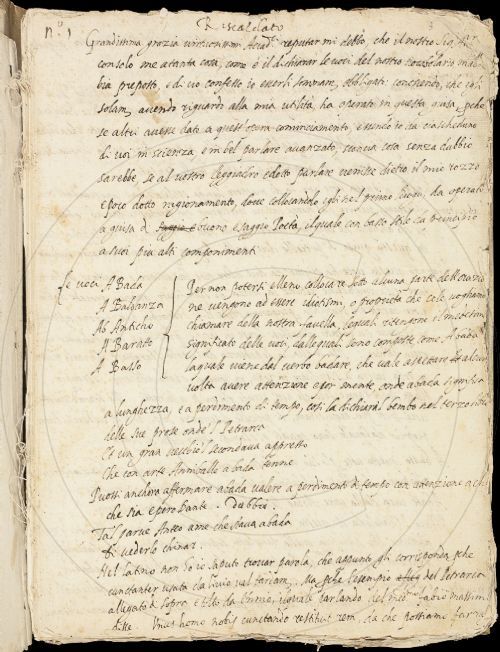 n.º 1 Riscaldato
Grandissima grazia virtuosissimi Acad. reputar mi debbo, che il nostro
consolo me a tanta cosa, come è il dichiarar le voci del nostro vocabolario
bia preposto, e di ciò confesso essergli obbligato: conoscendo, che egli
solam. avendo riguardo alla mia utilità, ha operato in questa guisa, perche
se altri avesse dato a quest' opera cominciamento, essendo io da ciascheduno
di voi in scienza, e in bel parlare avanzato, sconcia cosa senza dubbio
sarebbe, se al vostro leggiadro e dotto parlare venisse dietro il mio rozzo
e poco dotto ragionamento, dove collocandolo egli nel primo luogo, ha operato
a guisa d. buono e saggio Poeta, il quale con basso stile da principio
a suoi più alti componimenti
Le voci A Bada
A Baldanza
Ab Antichio
A Baratto
A Basso
Per non potersi elleno collocare sotto alcuna parte dell'orazio
ne vengono ad essere idiotismi, o proprietà che cele vogliamo
chiamare della nostra favella, i quali ritengono il medesimo
significato delle voci, dalle quali sono composte come A bada
la quale viene dal verbo badare, che vale aspettare et alcuna
volta avere attenzione e por mente, onde abada significa
a lunghezza, e a perdimento di tempo, così la dichiara 'l Bembo nel terzo
delle sue prose onde 'l Petrarca
Et un gran vecchio 'l secondava appresso
Che con arte Anniballe a bada tenne
Puossi anchora affermare abada valere a perdimento di tempo con attenzione a
che sia e però Dante. Dubbia.
Tal parve Anteo a me che stava a bada
Di vederlo chinar.
Nel latino non so io saputo trovar parola, che appunto gli corrisponda, perche
ma perche l'esempio del Petrarca
allegato di sopra è tolto da Ennio, il quale parlando del med.mo Fabio Massimo
disse. Unus homo nobis cunctando restituit rem, sa che possiamo